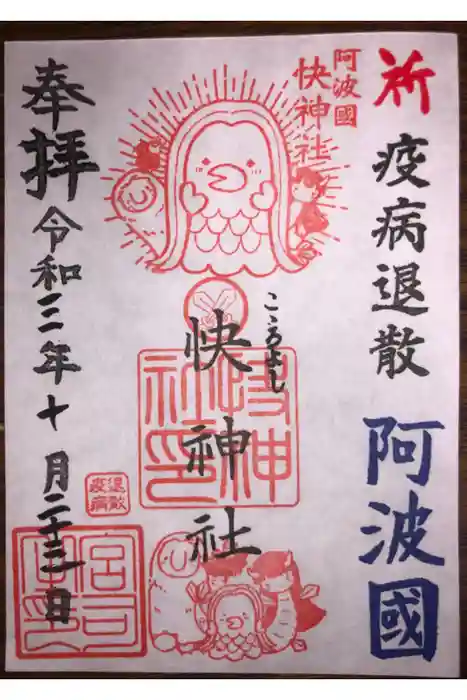 祈 疫病退散 阿波國
阿波國
快神社
こころよし
快神社
快神社印
疫病退散
奉拝 令和三年十月二十三日
宮司之印